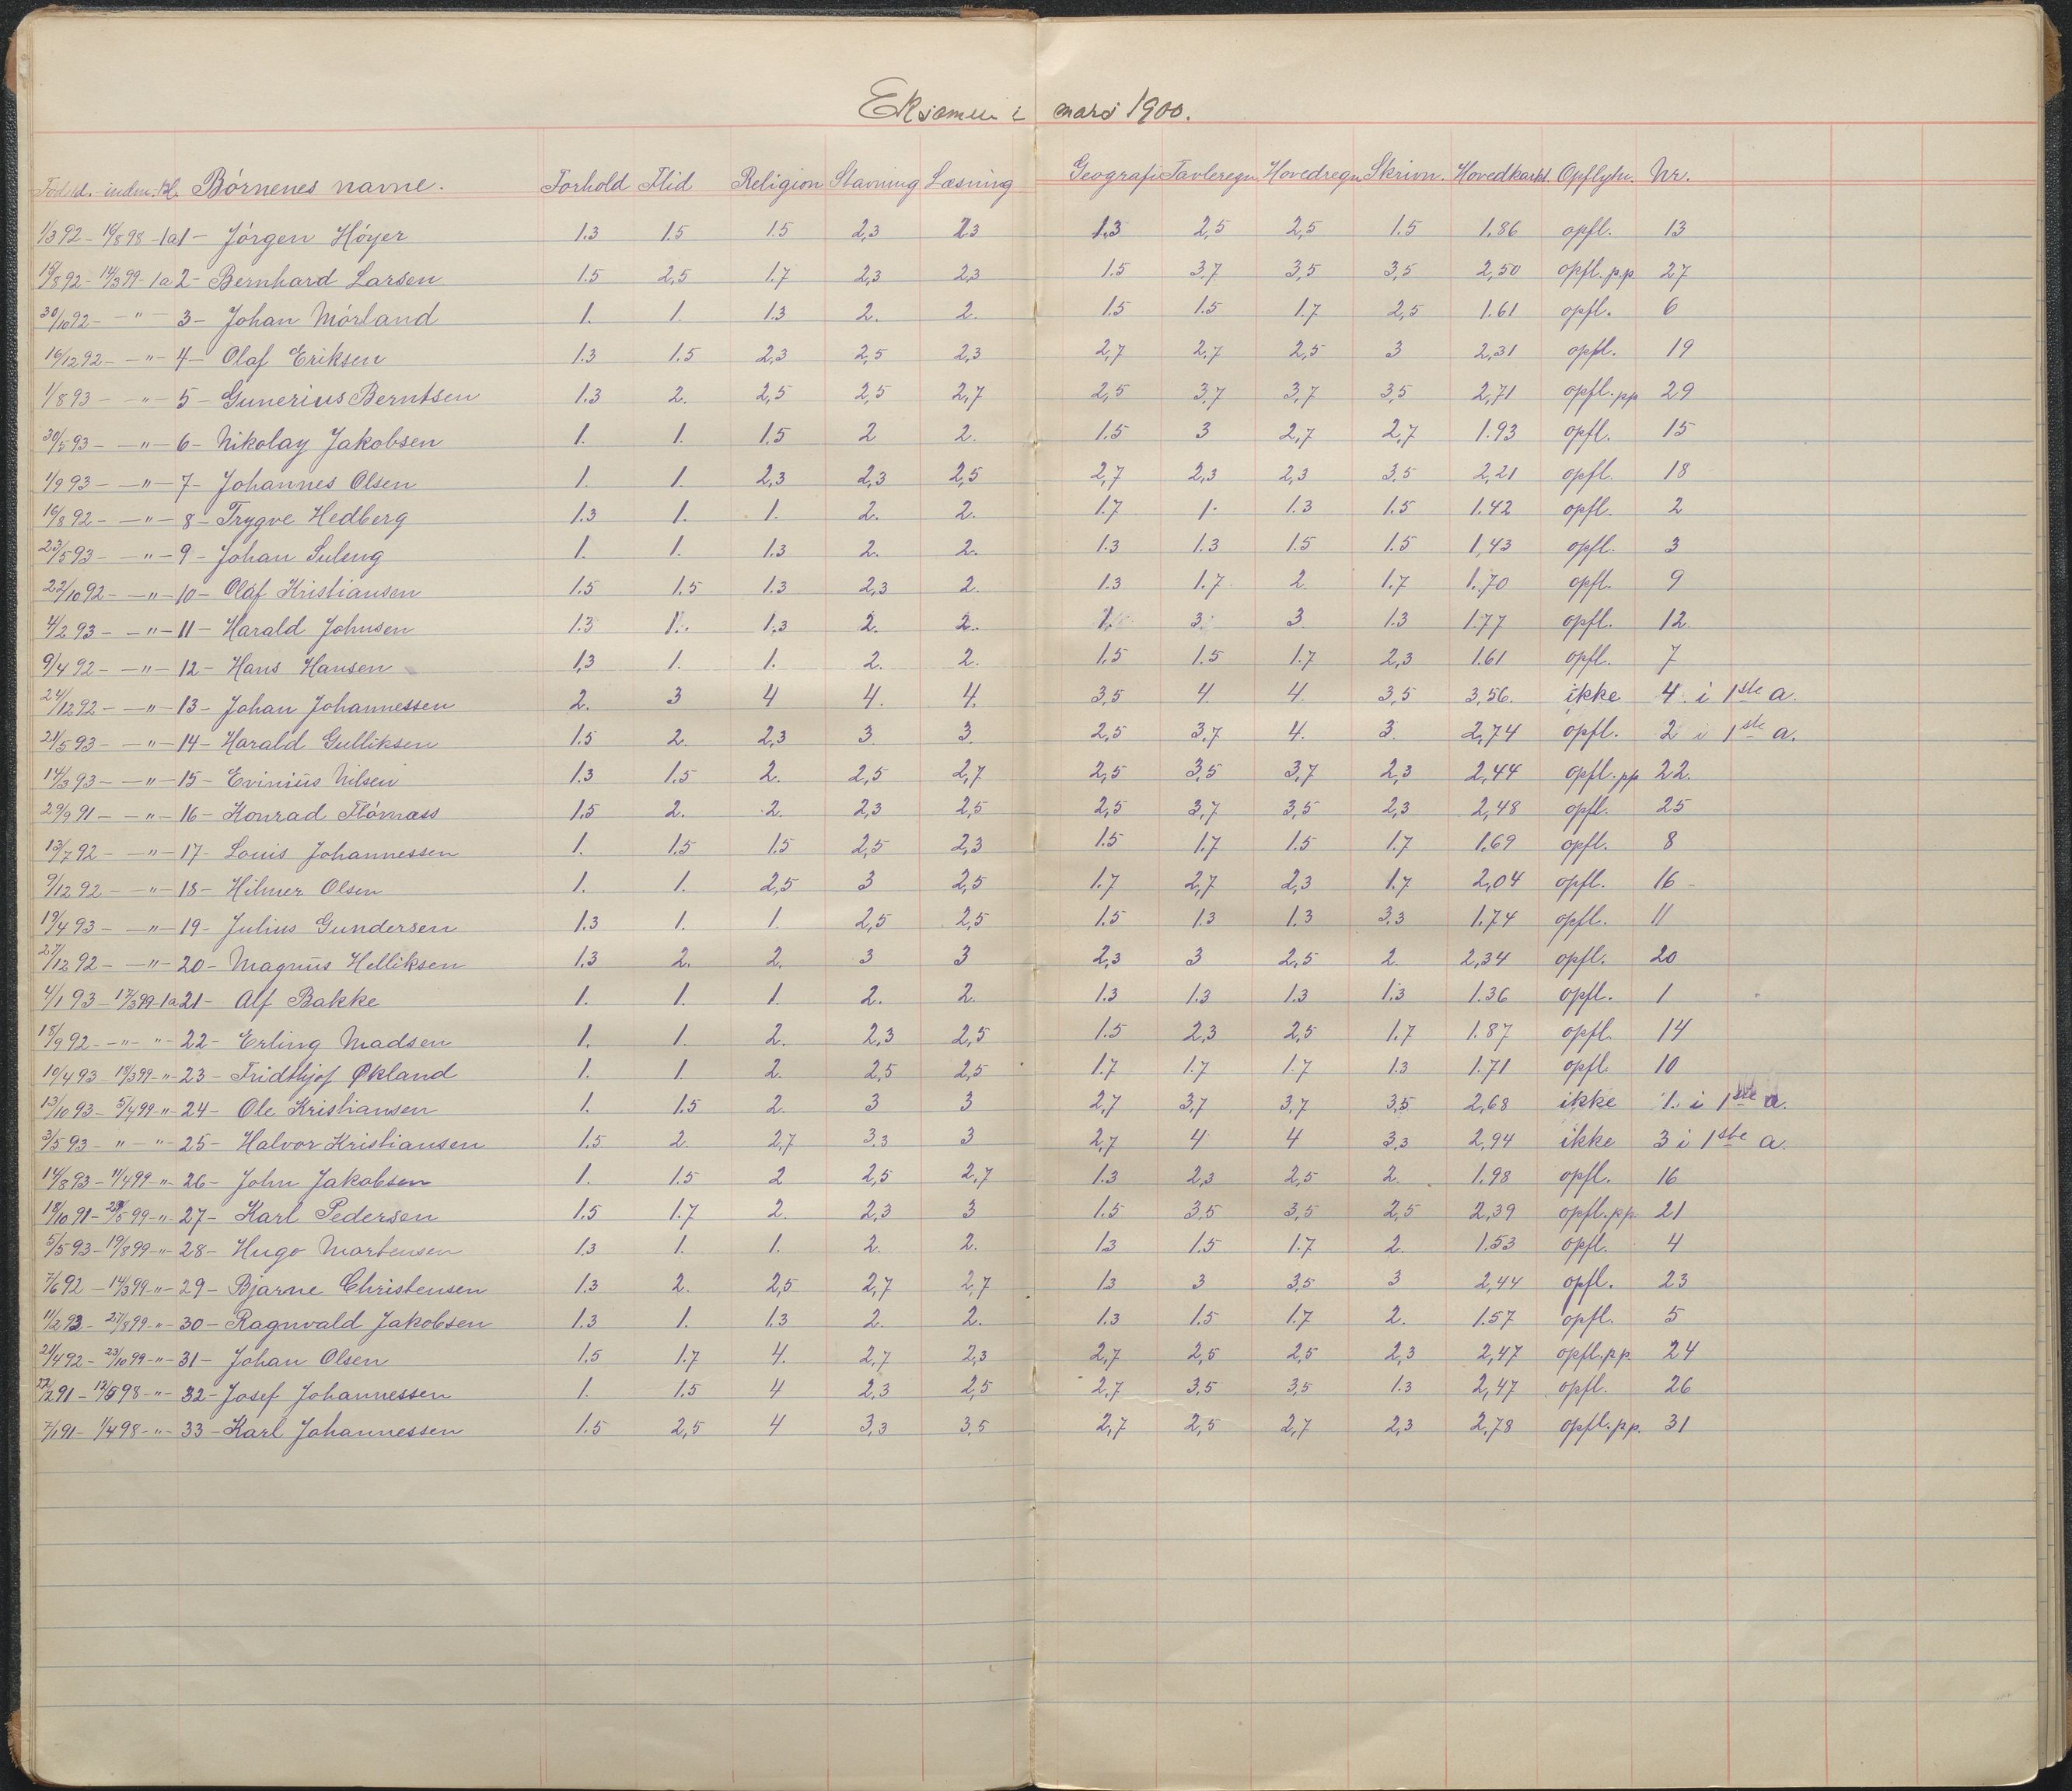 Eksamen i mars 1900.
Föd.td. indm. Kl. Börnenes navne. Forhold Flid Religion Stavning Læsning Geografi Tavleregn. Hovedregn. Skrivn. Hovedkarkt. Opflytn. Nr.
1/3 92 - 16/8 98 - 1a 1 - Jörgen Höyer 1.3 1.5 1.5 2,3 2.3 1.3 2,5 2,5 1.5 1.86 opfl. 13
15/8 92 - 14/3 99 - 1a 2 - Bernhard Larsen 1.5 2,5 1.7 2,3 2,3 1.5 3,7 3,5 3,5 2,50 opfl. p.p 27
30/10 92 - - " - 3 - Johan Mörland 1. 1. 1.3 2. 2. 1.5 1.5 1.7 2,5 1.61 opfl. 6
16/12 92 - - " - 4 - Olaf Eriksen 1.3 1.5 2,3 2,5 2,3 2,7 2,7 2,5 3 2,31 opfl. 19
1/8 93 - - " - 5 - Gunerius Berntsen 1.3 2. 2,5 2,5 2,7 2,5 3,7 3,7 3,5 2,71 opfl. pp 29
30/5 93 - - " - 6 - Nikolay Jakobsen 1. 1. 1.5 2 2. 1.5 3 2,7 2,7 1.93 opfl. 15
1/9 93 - - " - 7 - Johannes Olsen 1. 1. 2,3 2,3 2,5 2,7 2,3 2,3 3.5 2,21 opfl. 18
16/8 92 - - " - 8 - Trygve Hedberg 1.3 1. 1. 2. 2. 1.7 1. 1.3 1.5 1.42 opfl. 2
23/5 93 - - " - 9 - Johan Suleng 1. 1. 1.3 2. 2. 1.3 1.3 1.5 1.5 1,43 opfl. 3
22/10 92 - - " - 10 - Olaf Kristiansen 1.5 1.5 1.3 2,3 2. 1.3 1.7 2. 1.7 1.70 opfl. 9
4/2 93 - - " - 11 - Harald Johnsen 1.3 1. 1.3 2. 2. 1. 3. 3. 1.3 1.77 opfl. 12.
9/4 92 - - " - 12 - Hans Hansen 1,3 1. 1. 2. 2. 1.5 1.5 1.7 2,3 1.61 opfl. 7
24/12 92 - - " - 13 - Johan Johannessen 2. 3 4 4. 4. 3,5 4. 4. 3,5 3,56. ikke 4. i 1ste a.
21/5 93 - - " - 14 - Harald Gulliksen 1.5 2. 2,3 3. 3. 2,5 3,7 4. 3. 2,74 opfl. 2 i 1ste a.
14/3 93 - - " - 15 - Evinius Nilsen 1.3 1.5 2. 2,5 2,7 2,5 3,5 3,7 2,3 2,44 opfl. pp 22.
29/9 91 - - " - 16 - Konrad Flörnæss 1.5 2. 2. 2,3 2,5 2,5 3,7 3,5 2,3 2,48 opfl. 25
13/7 92 - - " - 17 - Louis Johannessen 1. 1.5 1.5 2,5 2,3 1.5 1.7 1.5 1.7 1.69 opfl. 8
9/12 92 - - " - 18 - Hilmer Olsen 1. 1. 2,5 3 2,5 1.7 2,7 2,3 1.7 2,04 opfl. 16 -
19/4 93 - - " - 19 - Julius Gundersen 1.3 1. 1. 2,5 2,5 1.5 1.3 1.3 3,3 1.74 opfl. 11
27/12 92 - - " - 20 - Magnus Helliksen 1.3 2. 2. 3 3 2,3 3 2,5 2. 2,34 opfl. 20
4/1 93 - 17/3 99 - 1a 21 - Alf Bakke 1. 1. 1. 2. 2. 1.3 1.3 1.3 1.3 1.36 opfl. 1
18/9 92 - - " - " - 22 - Erling Madsen 1. 1. 2. 2,3 2,5 1.5 2,3 2,5 1.7 1.87 opfl. 14
10/4 93 - 18/3 99 - " - 23 - Fridthjof Økland 1. 1. 2. 2,5 2,5 1.7 1.7 1.7 1.3 1.71 opfl. 10
13/10 93 - 5/4 99 - " - 24 - Ole Kristiansen 1. 1.5 2. 3 3 2,7 3,7 3,7 3,5 2,68 ikke 1. i 1ste a.
3/5 93 - " - " - 25 - Halvor Kristiansen 1.5 2. 2,7 3.3 3 2,7 4 4 3,3 2,94 ikke 3 i 1ste a.
14/8 93 - 11/4 99 - " - 26 - John Jakobsen 1. 1.5 2 2,5 2,7 1.3 2,3 2,5 2. 1.98 opfl. 16
18/10 91 - 29/5 99 - " - 27 - Karl Pedersen 1.5 1.7 2. 2,3 3 1.5 3.5 3,5 2,5 2,39 opfl. pp. 21
5/5 93 - 19/8 99 - " - 28 - Hugo Martensen 1.3 1. 1. 2. 2. 1.3 1.5 1.7 2. 1.53 opfl. 4
7/6 92 - 14/3 99 - " - 29 - Bjarne Christensen 1.3 2. 2,5 2,7 2,7 1.3 3 3,5 3 2,44 opfl. 23
11/2 93 - 27/8 99 - " - 30 - Ragnvald Jakobsen 1.3 1. 1.3 2. 2. 1.3 1.5 1.7 2. 1.57 opfl. 5
21/4 92 - 23/10 99 - " - 31 - Johan Olsen 1.5 1.7 4. 2,7 2,3 2,7 2,5 2,5 2,3 2,47 opfl. pp. 24
22/2 91 - 12/5 98 - " - 32 - Josef Johannessen 1. 1.5 4 2,3 2,5 2,7 3,5 3,5 1.3 2,47 opfl. 26
7/1 91 - 1/4 98 - " - 33 - Karl Johannessen 1.5 2,5 4 3,3 3,5 2,7 2,5 2,7 2,3 2,78 opfl. pp. 31